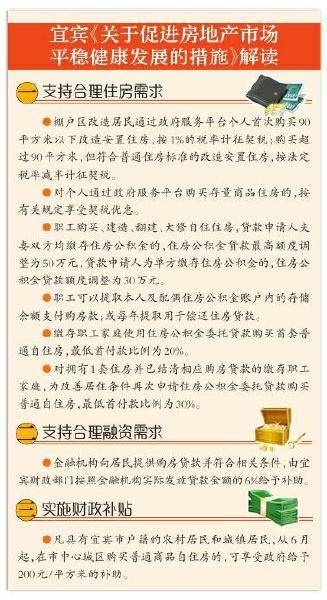 宜宾《关于促进房地产市场
平稳健康发展的措施》解读
一 支持合理住房需求
●棚户区改造居民通过政府服务平台个人首次购买90
平方米以下改造安置住房，按1%的税率计征契税；购买超
过90平方米，但符合普通住房标准的改造安置住房，按法定
税率减半计征契税。
●对个人通过政府服务平台购买存量商品住房的，按
有关规定享受契税优惠。
●职工购买、建造、翻建、大修自住住房，贷款申请人夫
妻双方均缴存住房公积金的，住房公积金贷款最高额度调
整为50万元，贷款申请人为单方缴存住房公积金的，住房公
积金贷款额度调整为30万元。
●职工可以提取本人及配偶住房公积金账户内的存储
余额支付购房款，或每年提取用于偿还住房贷款。
●缴存职工家庭使用住房公积金委托贷款购买首套普
通自住房，最低首付款比例为20%。
●对拥有1套住房并已结清相应购房贷款的缴存职工
家庭，为改善居住条件再次申请住房公积金委托贷款购买
普通自住房，最低首付款比例为30%。
二 支持合理融资需求
●金融机构向居民提供购房贷款并符合相关条件，由宜
宾财政部门按照金融机构实际发放贷款金额的6%给予补助。
三 实施财政补贴
●凡具有宜宾市户籍的农村居民和城镇居民，从6月
起，在市中心城区购买普通商品自住房的，可享受政府给予
200元/平方米的补助。